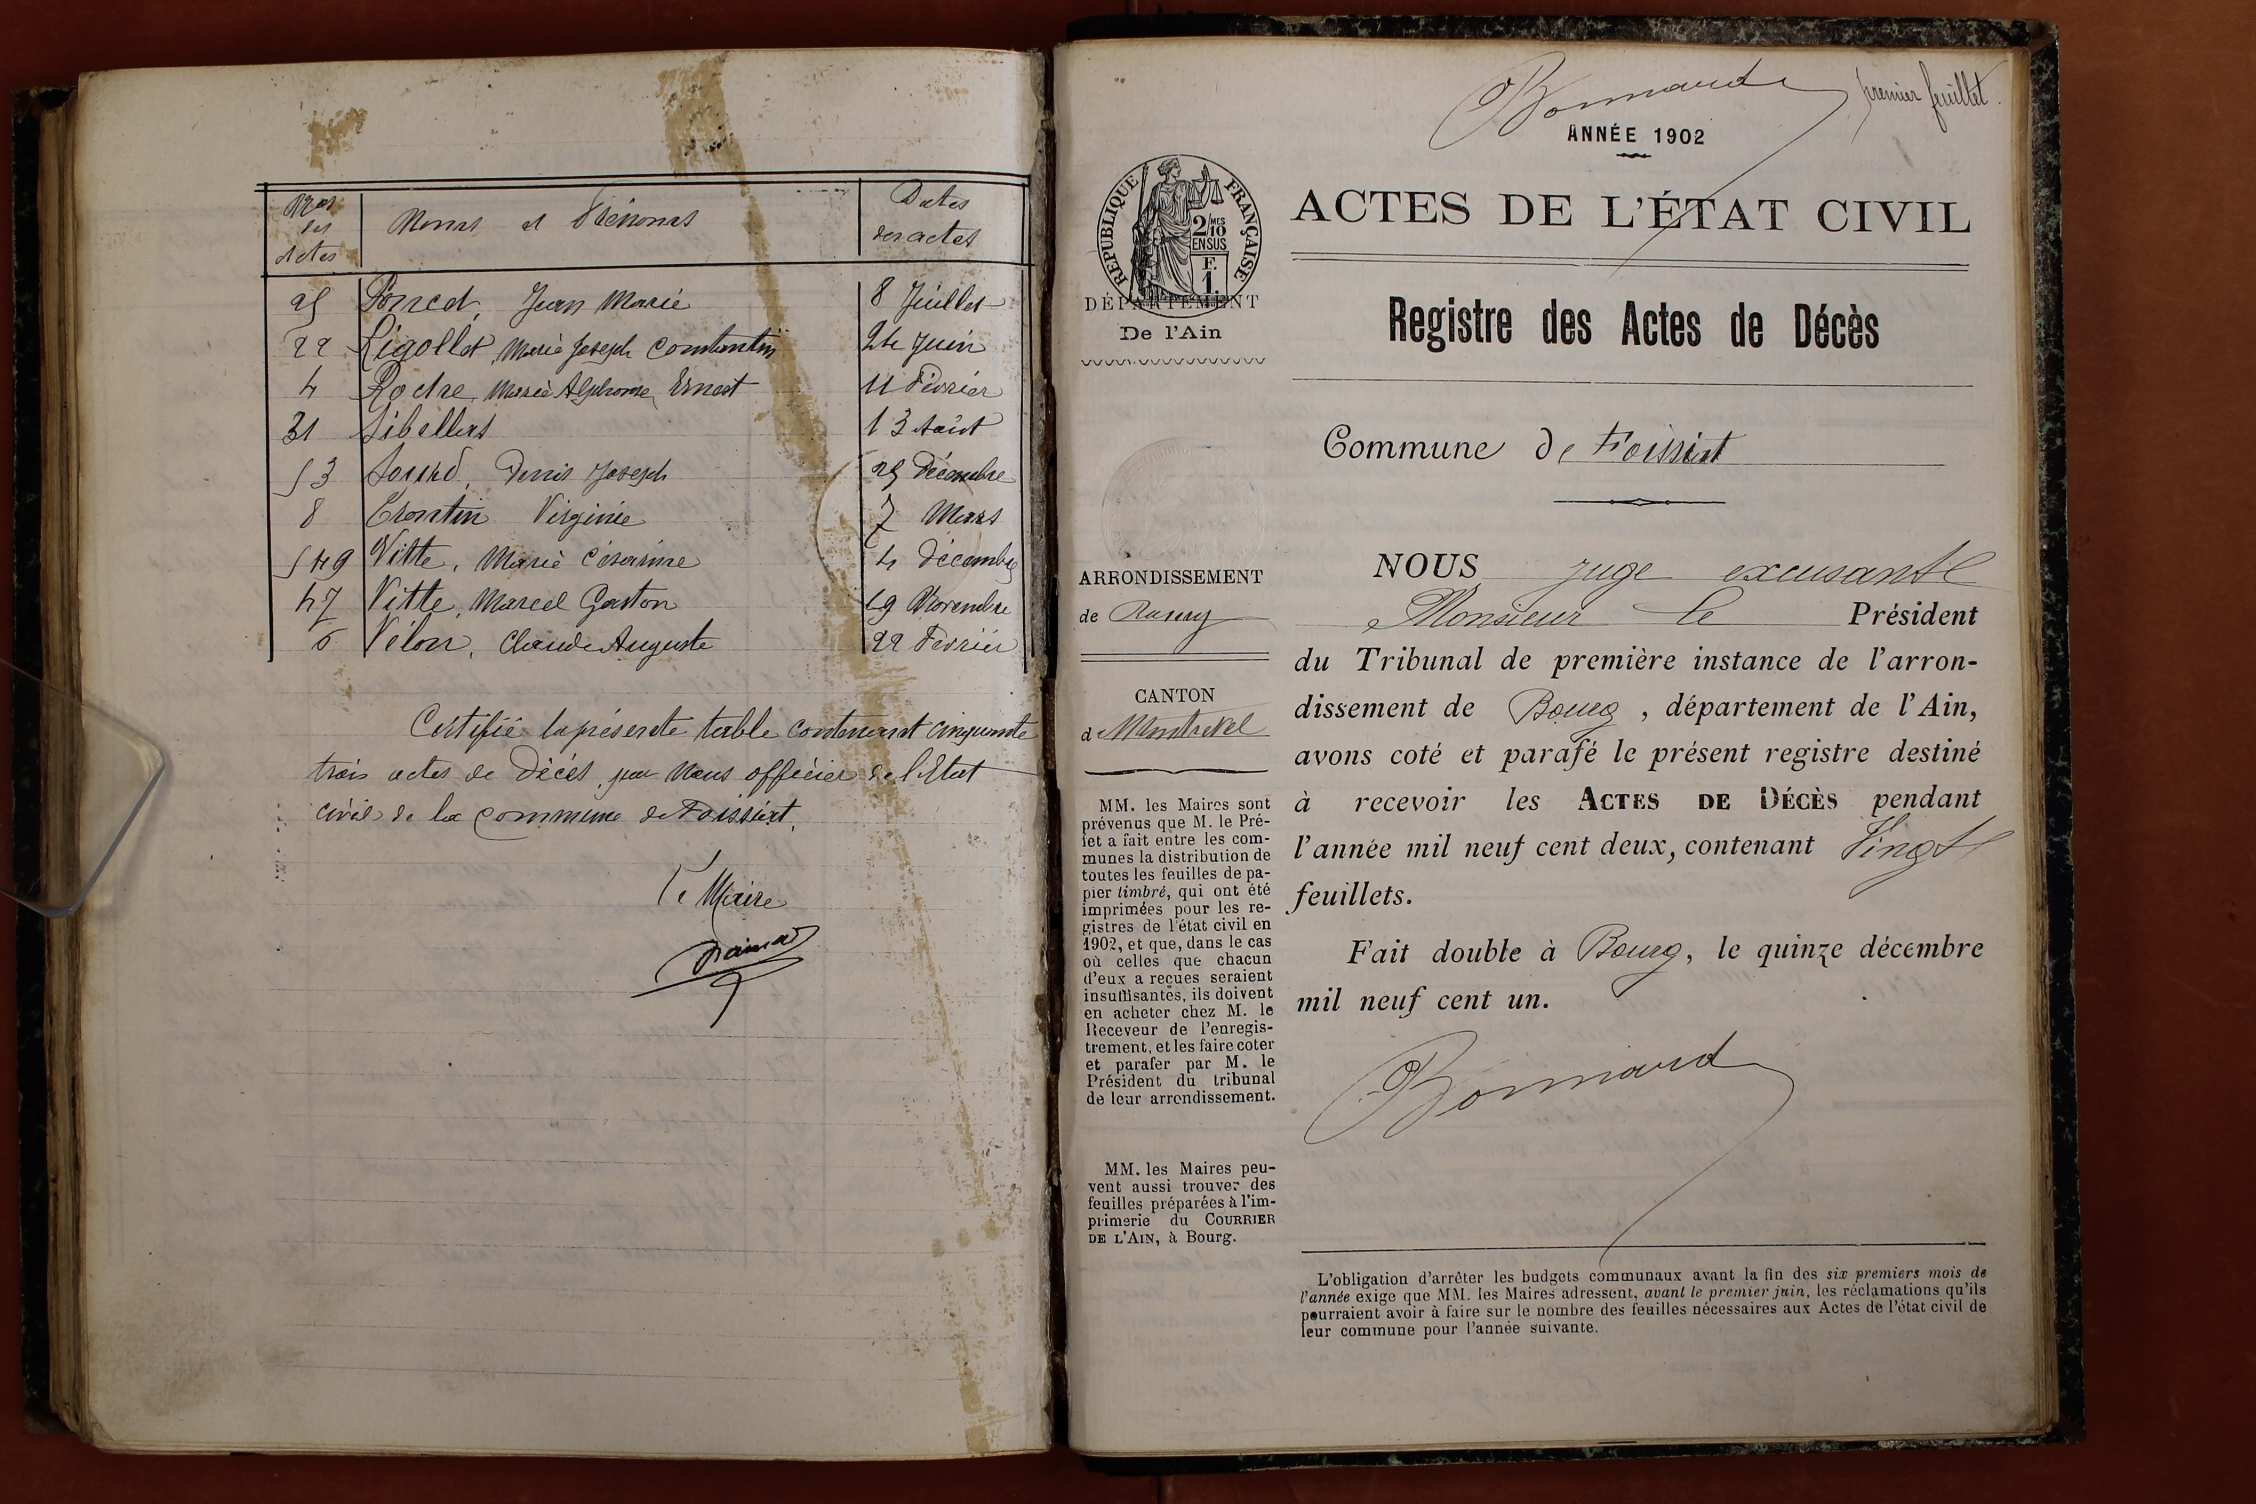 Nos des actes | Noms et Prénoms | Dates des actes
25 Poncet, Jean Marie 8 Juillet
22 Rigollet, Marie Joseph Constantin 24 Juin
4 Roche, Marie Alphonse Ernest 11 Février
31 Sibellas 13 Août
53 Sourd, Denis Joseph 25 Décembre
8 Trontin Virginie 7 Mars
49 Vitte, Marie Césarine 4 Décembre
47 Vitte, Marcel Gaston 19 Novembre
6 Vélon, Claude Auguste 22 Février
Certifié la présente table contenant cinquante
trois actes de Décès, par Nous officier de l'Etat
civil de la commune de Foissiat.
Le Maire
Bonnard
premier feuillet.
ANNÉE 1902
ACTES DE L'ÉTAT CIVIL
RÉPUBLIQUE FRANÇAISE
2/10 MES
EN SUS
F.
1.
DÉPARTEMENT
De l'Ain
Registre des Actes de Décès
Commune de Foissiat
ARRONDISSEMENT
de Bourg
CANTON
de Montrevel
MM. les Maires sont
prévenus que M. le Pré-
fet a fait entre les com-
munes la distribution de
toutes les feuilles de pa-
pier timbré, qui ont été
imprimées pour les re-
gistres de l'état civil en
1902, et que, dans le cas
où celles que chacun
d'eux a reçues seraient
insuffisantes, ils doivent
en acheter chez M. le
Receveur de l'enregis-
trement, et les faire coter
et parafer par M. le
Président du tribunal
de leur arrondissement.
MM. les Maires peu-
vent aussi trouver des
feuilles préparées à l'im-
primerie du COURRIER
DE L'AIN, à Bourg.
NOUS juge excusant
Monsieur le Président
du Tribunal de première instance de l'arron-
dissement de Bourg, département de l'Ain,
avons coté et parafé le présent registre destiné
à recevoir les ACTES DE DÉCÈS pendant
l'année mil neuf cent deux, contenant Vingt
feuillets.
Fait double à Bourg, le quinze décembre
mil neuf cent un.
Bonnard
L'obligation d'arrêter les budgets communaux avant la fin des six premiers mois de
l'année exige que MM. les Maires adressent, avant le premier juin, les réclamations qu'ils
pourraient avoir à faire sur le nombre des feuilles nécessaires aux Actes de l'état civil de
leur commune pour l'année suivante.